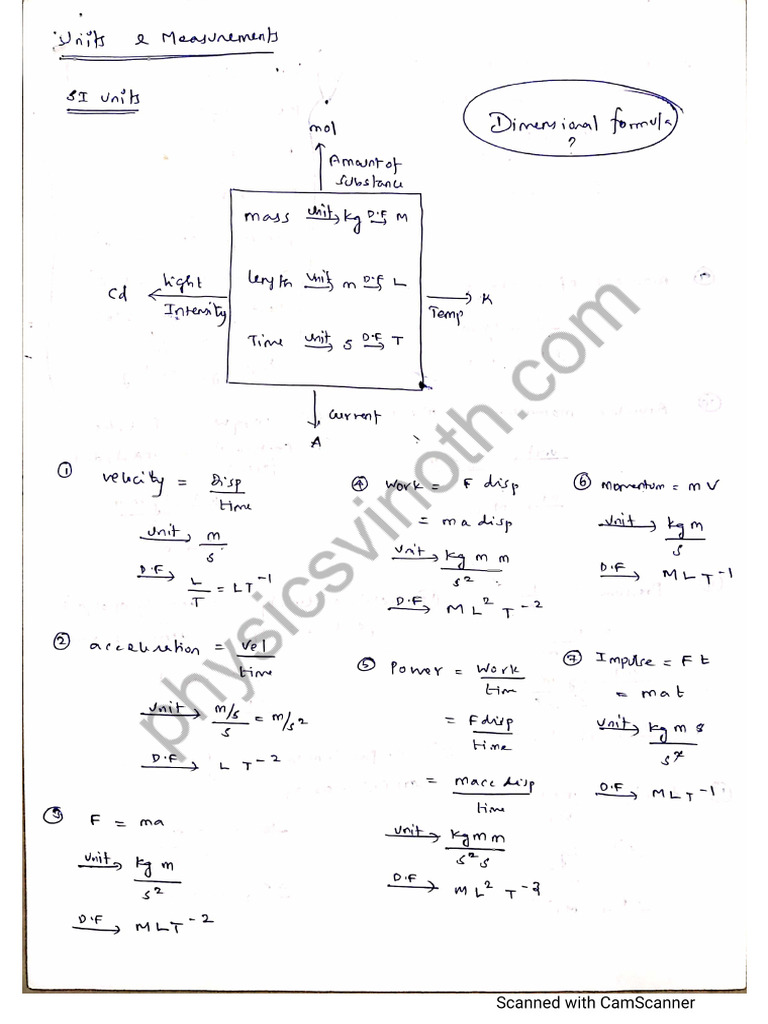 Units & Measurements
SI Units
Dimensional formula
?
mol
Amount of
Substance
mass unit→ kg D.F→ M
length unit→ m D.F→ L
Time unit→ s D.F→ T
Cd ← Light
Intensity
→ K
Temp
↓ Current
A
① Velocity = Disp
time
unit→ m
s
D.F→ L
T = LT⁻¹
② acceleration = vel
time
unit→ m/s
s = m/s²
D.F→ L T⁻²
③ F = ma
unit→ kg m
s²
D.F→ MLT⁻²
④ Work = F disp
= ma disp
unit→ kg m m
s²
D.F→ M L² T⁻²
⑤ Power = Work
tim
= F disp
time
= macc disp
time
unit→ kg m m
s² s
D.F→ M L² T⁻³
⑥ momentum = m V
unit→ kg m
s
D.F→ M L T⁻¹
⑦ Impulse = F t
= mat
unit→ kg m s
s²
D.F→ M L T⁻¹
physicsvinoth.com
Scanned with CamScanner